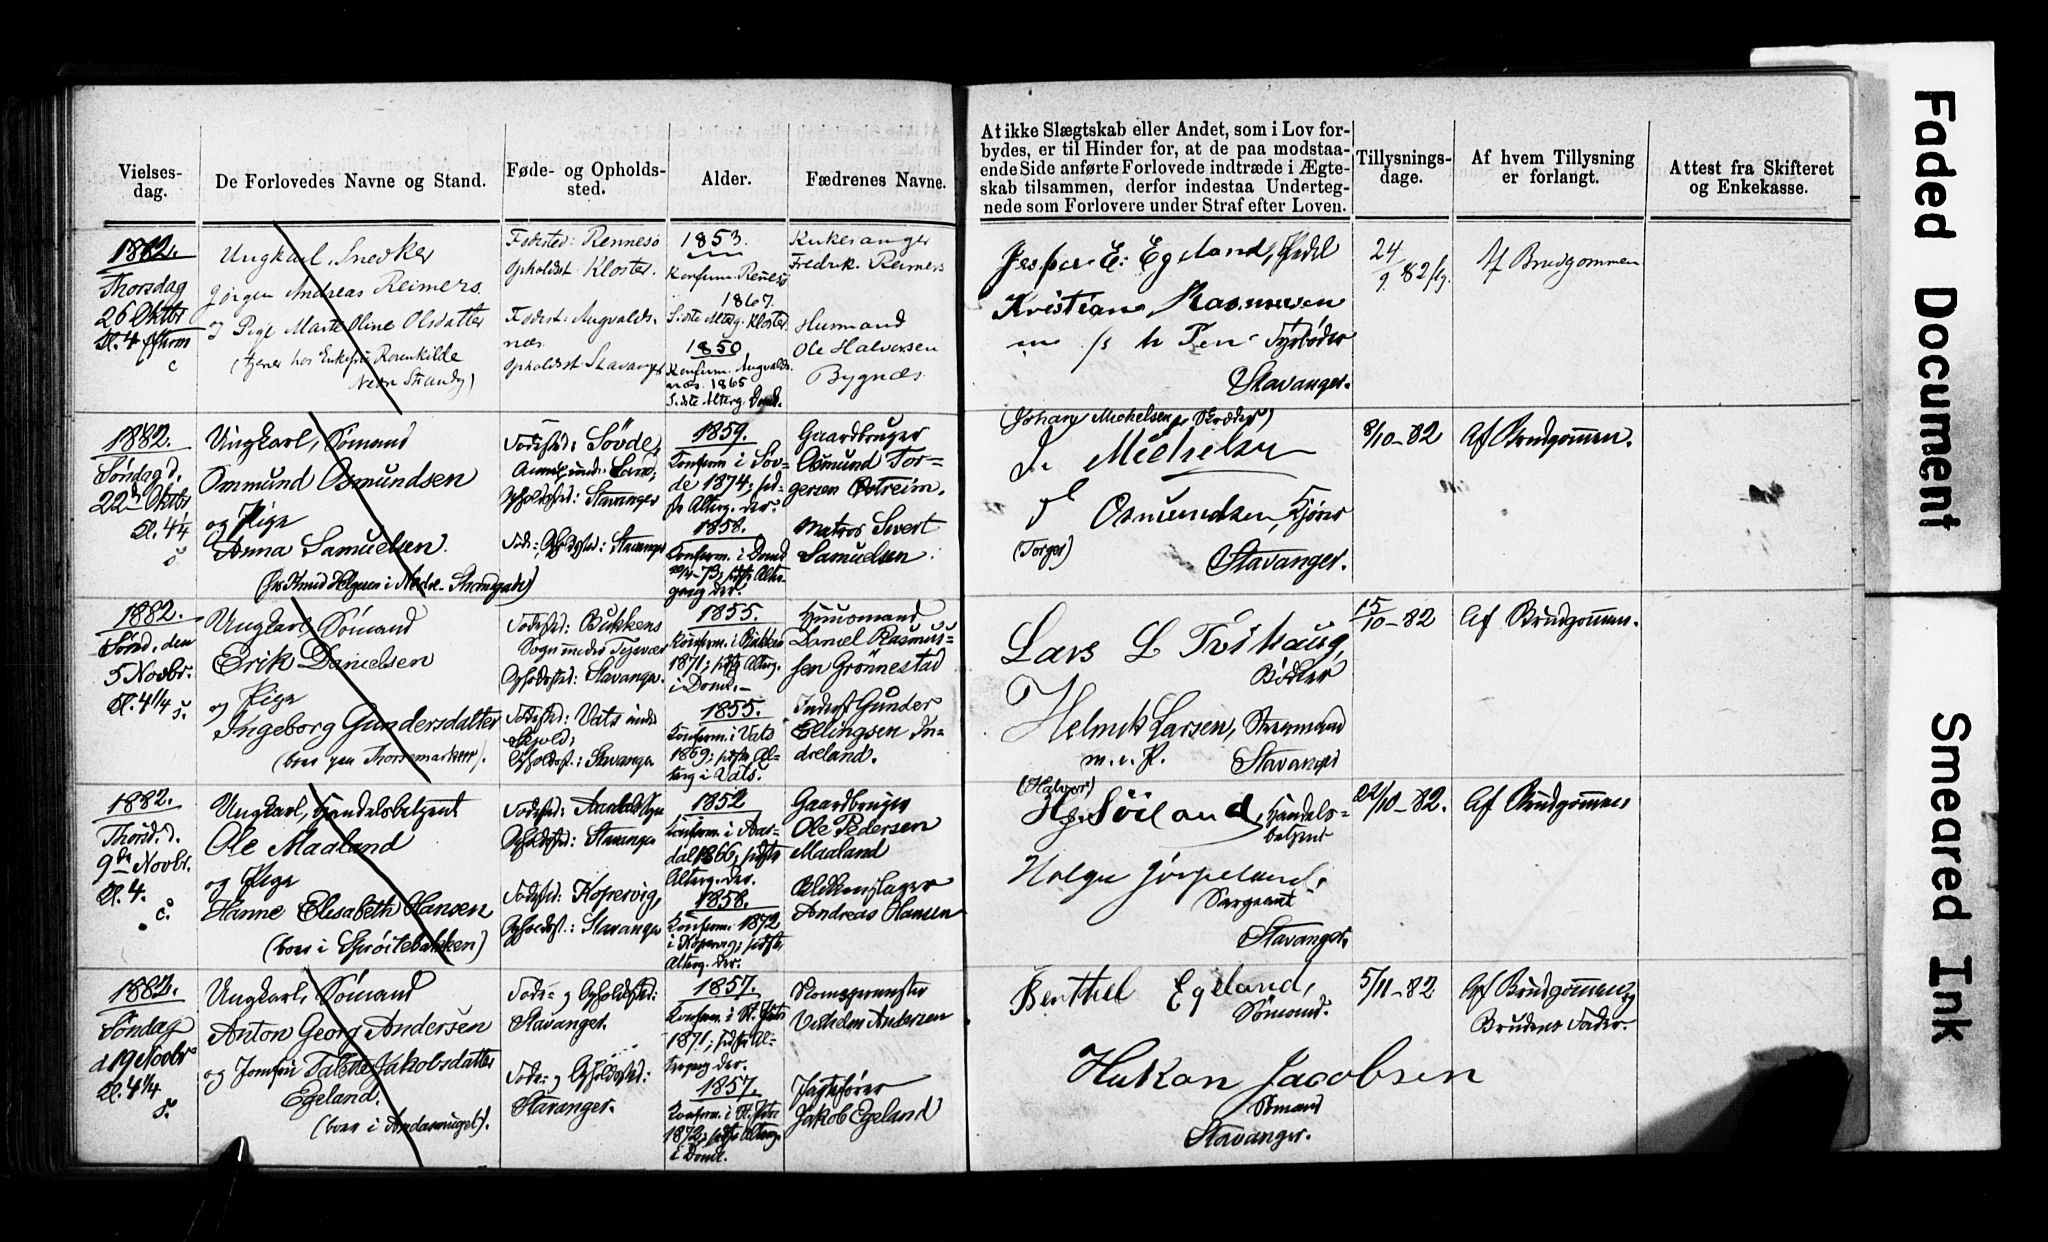 Vielses-
dag.
De Forlovedes Navne og Stand.
Føde- og Opholds-
sted.
Alder.
Fædrenes Navne.
At ikke Slægtskab eller Andet, som i Lov for-
bydes, er til Hinder for, at de paa modstaa-
ende Side anførte Forlovede indtræde i Ægte-
skab tilsammen, derfor indestaa Underteg-
nede som Forlovere under Straf efter Loven.
Tillysnings-
dage.
Af hvem Tillysning
er forlangt.
Attest fra Skifteret
og Enkekasse.
1882.
Thorsdag
26 Oktbr
Kl. 4 Efterm
c
Ungkarl, Snedker
Jørgen Andreas Reimers
og Pige Marte Oline Olsdatter
(tjener hos Enkefru Rosenkilde
Nedre Strandg)
Fødested: Rennesø
Opholdst: Kloster.
Fødest: Augvalds-
næs.
Opholdst: Stavanger
1853.
Konfirm. Rennesø
1867.
Sidste Alterg. Kloster
1850
Konfirm. Augvalds
næs. 1865
Sidste Alterg. Domk.
Fredrik Reimers
Husmand
Ole Halversen
Bygnæs.
Jesper E. Egeland,
Kristian Rasmussen
Fyrbøder
Stavanger.
24
9 82
Af Brudgommen
1882.
Søndag d.
22d Oktbr
Kl. 4¼
Ungkarl, Sømand
Ommund Osmundsen
og Pige
Anna Samuelsen.
(hos Knud Helgesen i Nedre Strandgade)
Fødested: Søvde,
Opholdsted: Stavanger
Føde-, Opholdsted: Stavanger
1859.
Konfirm. i Søv-
de 1874; sid-
ste Alterg. der.
1858.
Konfirm. i Domk
73; sidste Alter-
gang der.
Gaardbruger
Osmund Tor-
gersen Østreim.
Matros Sivert
Samuelsen.
(Johan Michelsen, Skræder)
Michelsen
Osmundsen, Kjører
(Torger)
Stavanger.
8/10-82
Af Brudgommen.
1882.
Sønd. den
5 Novbr.
Kl. 4¼
s.
Ungkarl, Sømand
Erik Danielsen
og Pige
Ingeborg Gundersdatter
(boer paa Thorsemarken).
Fødested: Bukkens
Sogn under Tysvær
Opholdsted: Stavanger.
Fødested: Vats under
Skjold;
Opholdst.: Stavanger
1855.
Konfirm. i Bukken
1871; sidste Alterg.
i Domk.
1855.
Konfirm. i Vats
1869; sidste Al-
terg i Vats.
Huusmand
Daniel Rasmus-
sen Grønnestad
Inderst Gunder
Ellingsen In-
dreland.
Lars L Tvihaug,
Bødker
Helmik Larsen,
m. i. P.
Stavanger
15
10-82
Af Brudgommen.
1882.
Thorsd. d.
9de Novbr.
Kl. 4.
c.
Ungkarl, Handelsbetjent
Ole Maaland
og Pige
Hanne Elisabeth Hansen
(boer i Sprøitebakken)
Opholdsted: Stavanger
Fødested: Kopervig,
Opholdst.: Stavanger
1852
Konfirm. i Aar-
dal 1866, sidste
Alterg. der.
1858.
Konfirm. 1872
i Kopervig; sidste
Alterg. der.
Gaardbruger
Ole Pedersen
Maaland
Blikkenslager
Andreas Hansen
(Halvor)
H. Søiland, Handels-
betjent
Holger Jørpeland,
Sergeant
Stavanger.
22/10-82.
Af Brudgommen
1882.
Søndag
d 19 Novbr
Kl. 4¼
s.
Ungkarl, Sømand
Anton Georg Andersen
og Jomfru Talette Jakobsdatter
Egeland.
(boer i Andasmuget).
Føde- og Opholdsted:
Stavanger.
Føde- og Opholdsted:
Stavanger.
1857.
Konfirm. i St. Petri
1871; sidste Al-
tergang der.
1857.
Konfirm. i St. Petri
1872; sidste Alterg.
i Domk.
Skomagermester
Vilhelm Andersen
Jagtefører
Jakob Egeland
Berthel Egeland,
Sømand.
Hakon Jacobsen
Sømand
Stavanger.
5/11-82
Af Brudgommen og
Brudens Fader.
Faded Document
Smeared Ink